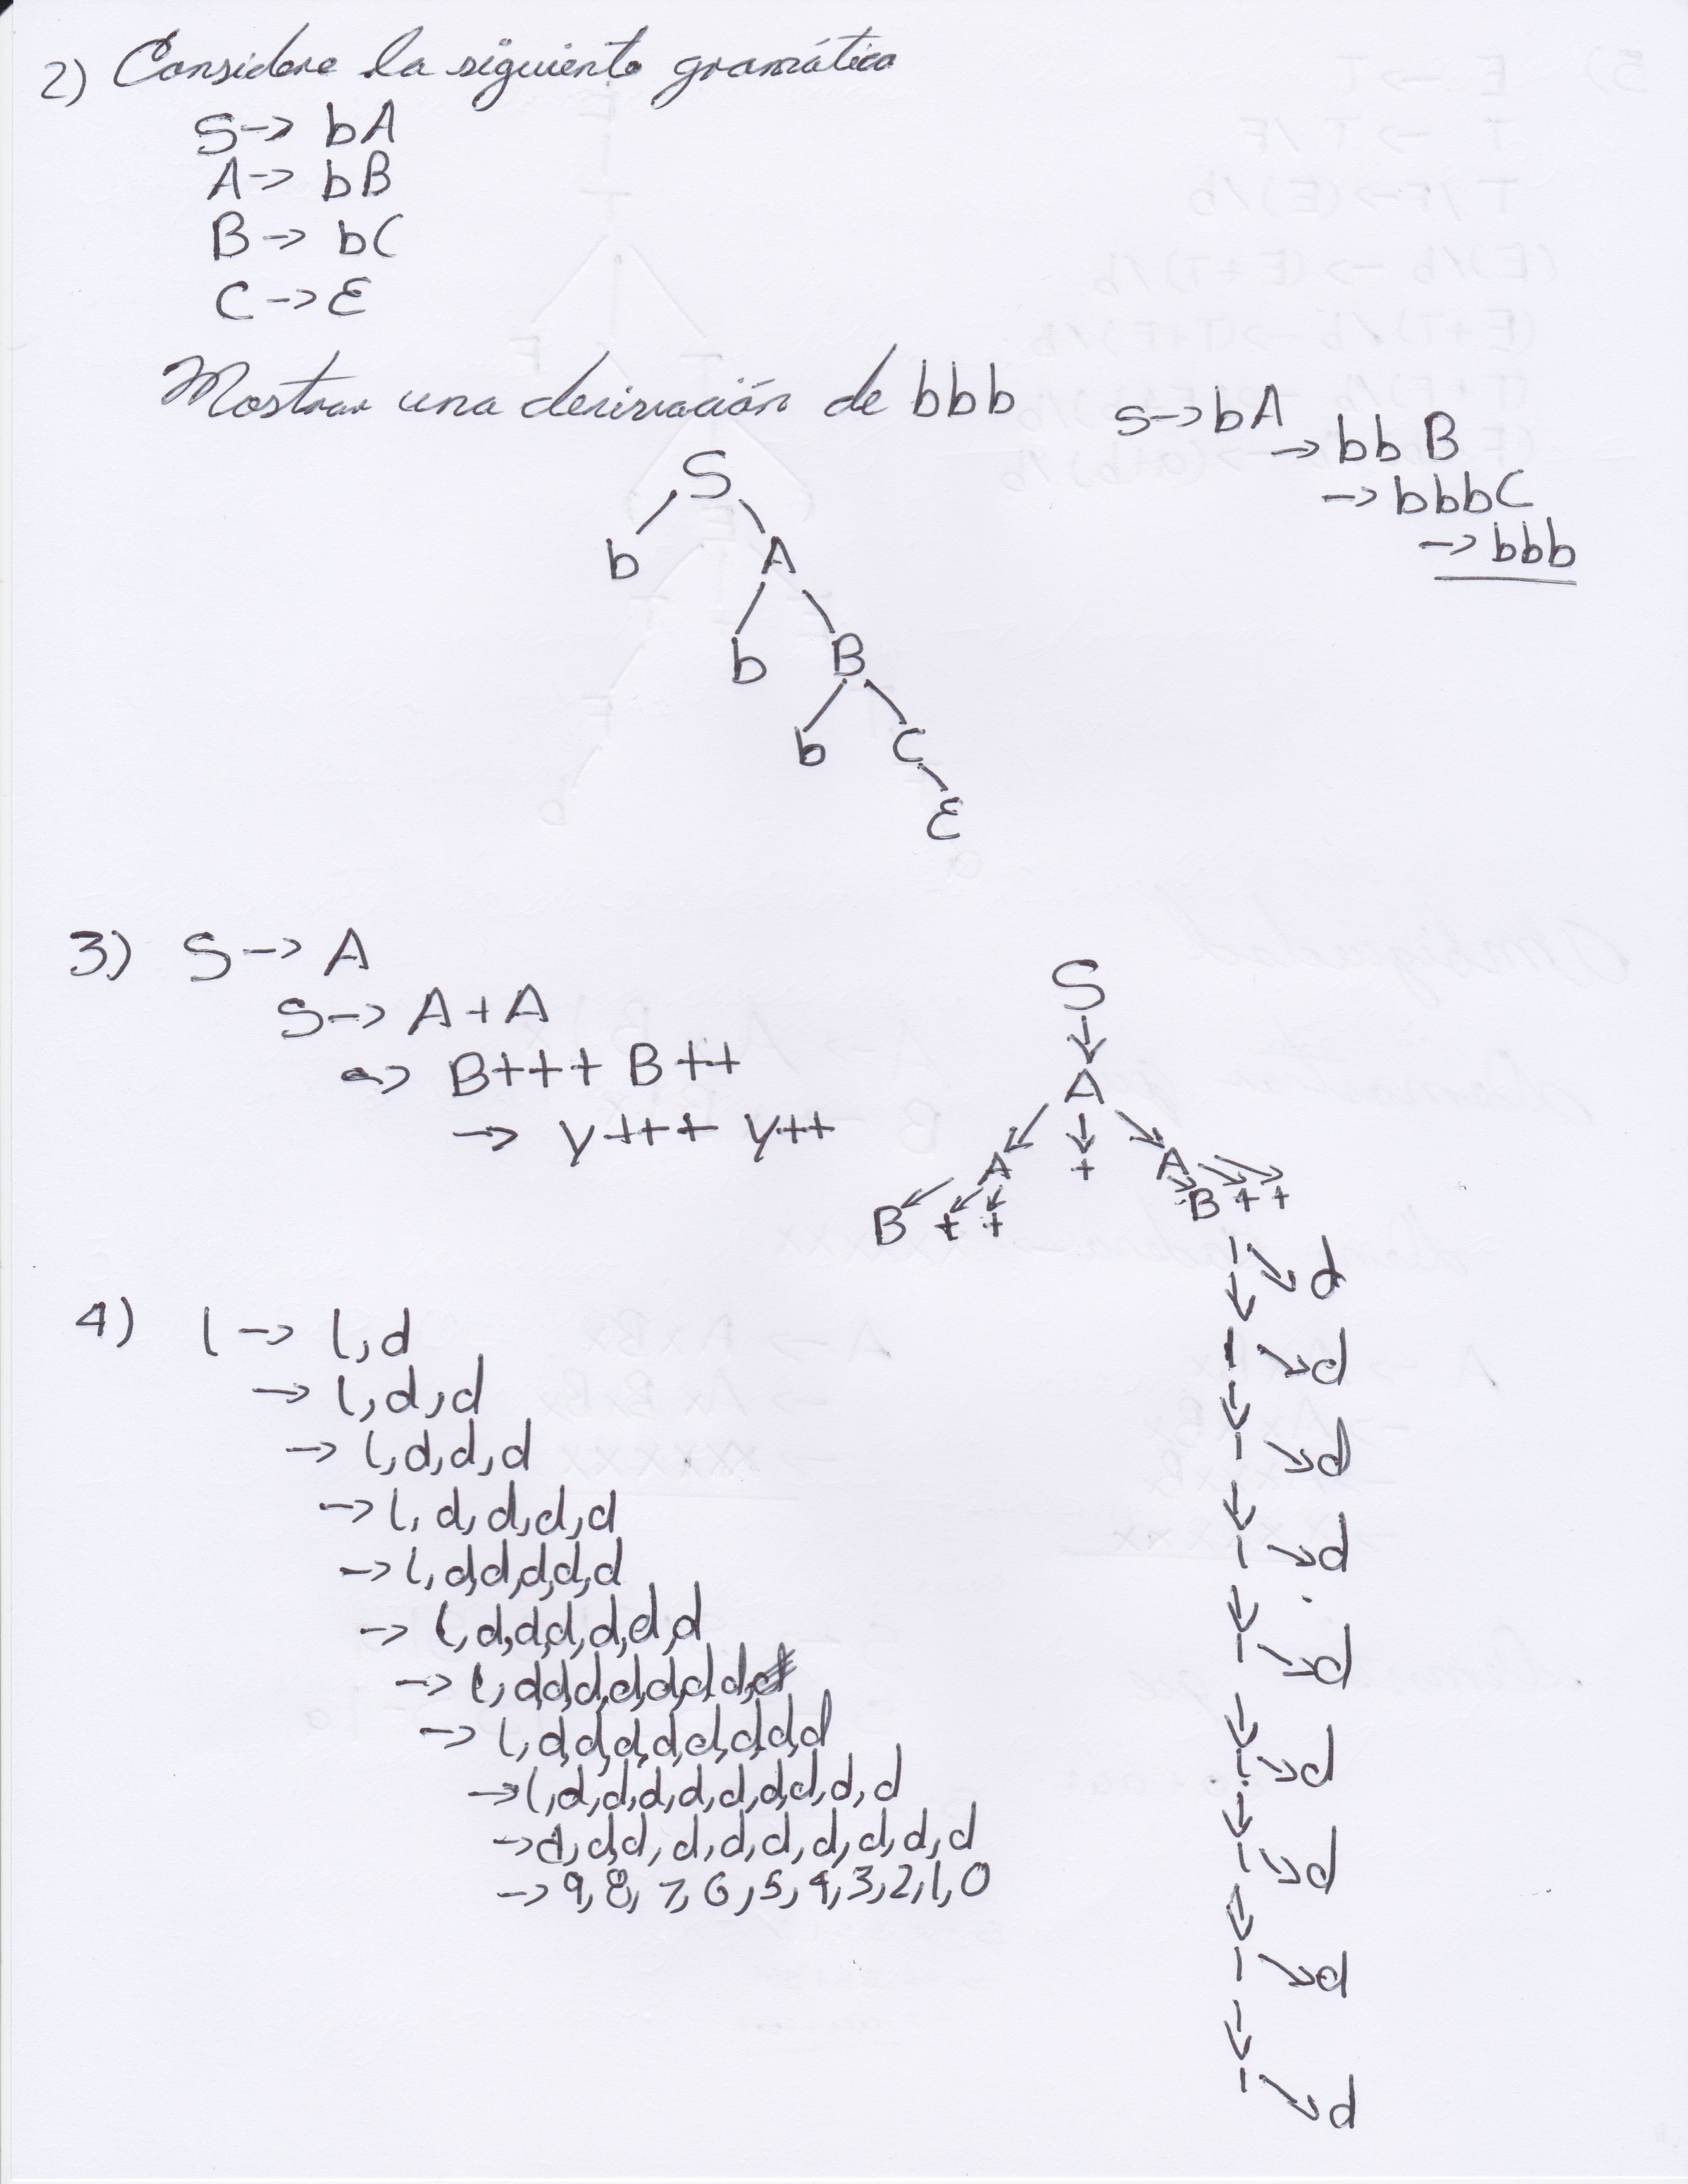 2) Considere la siguiente gramática
S -> bA
A -> bB
B -> bC
C -> ε
Mostrar una derivación de bbb
S -> bA
-> bbB
-> bbbC
-> bbb
S
b A
b B
b C
ε
3) S -> A
S -> A+A
=> B+++ B++
-> y+++ y++
S
A
A + A
B + + B + +
4) l -> l,d
-> l,d,d
-> l,d,d,d
-> l,d,d,d,d
-> l,d,d,d,d,d
-> l,d,d,d,d,d,d
-> l,d,d,d,d,d,d,d
-> l,d,d,d,d,d,d,d,d
-> l,d,d,d,d,d,d,d,d,d
-> d,d,d,d,d,d,d,d,d,d
-> 9,8,7,6,5,4,3,2,1,0
l d
l d
l d
l d
l d
l d
l d
l d
l d